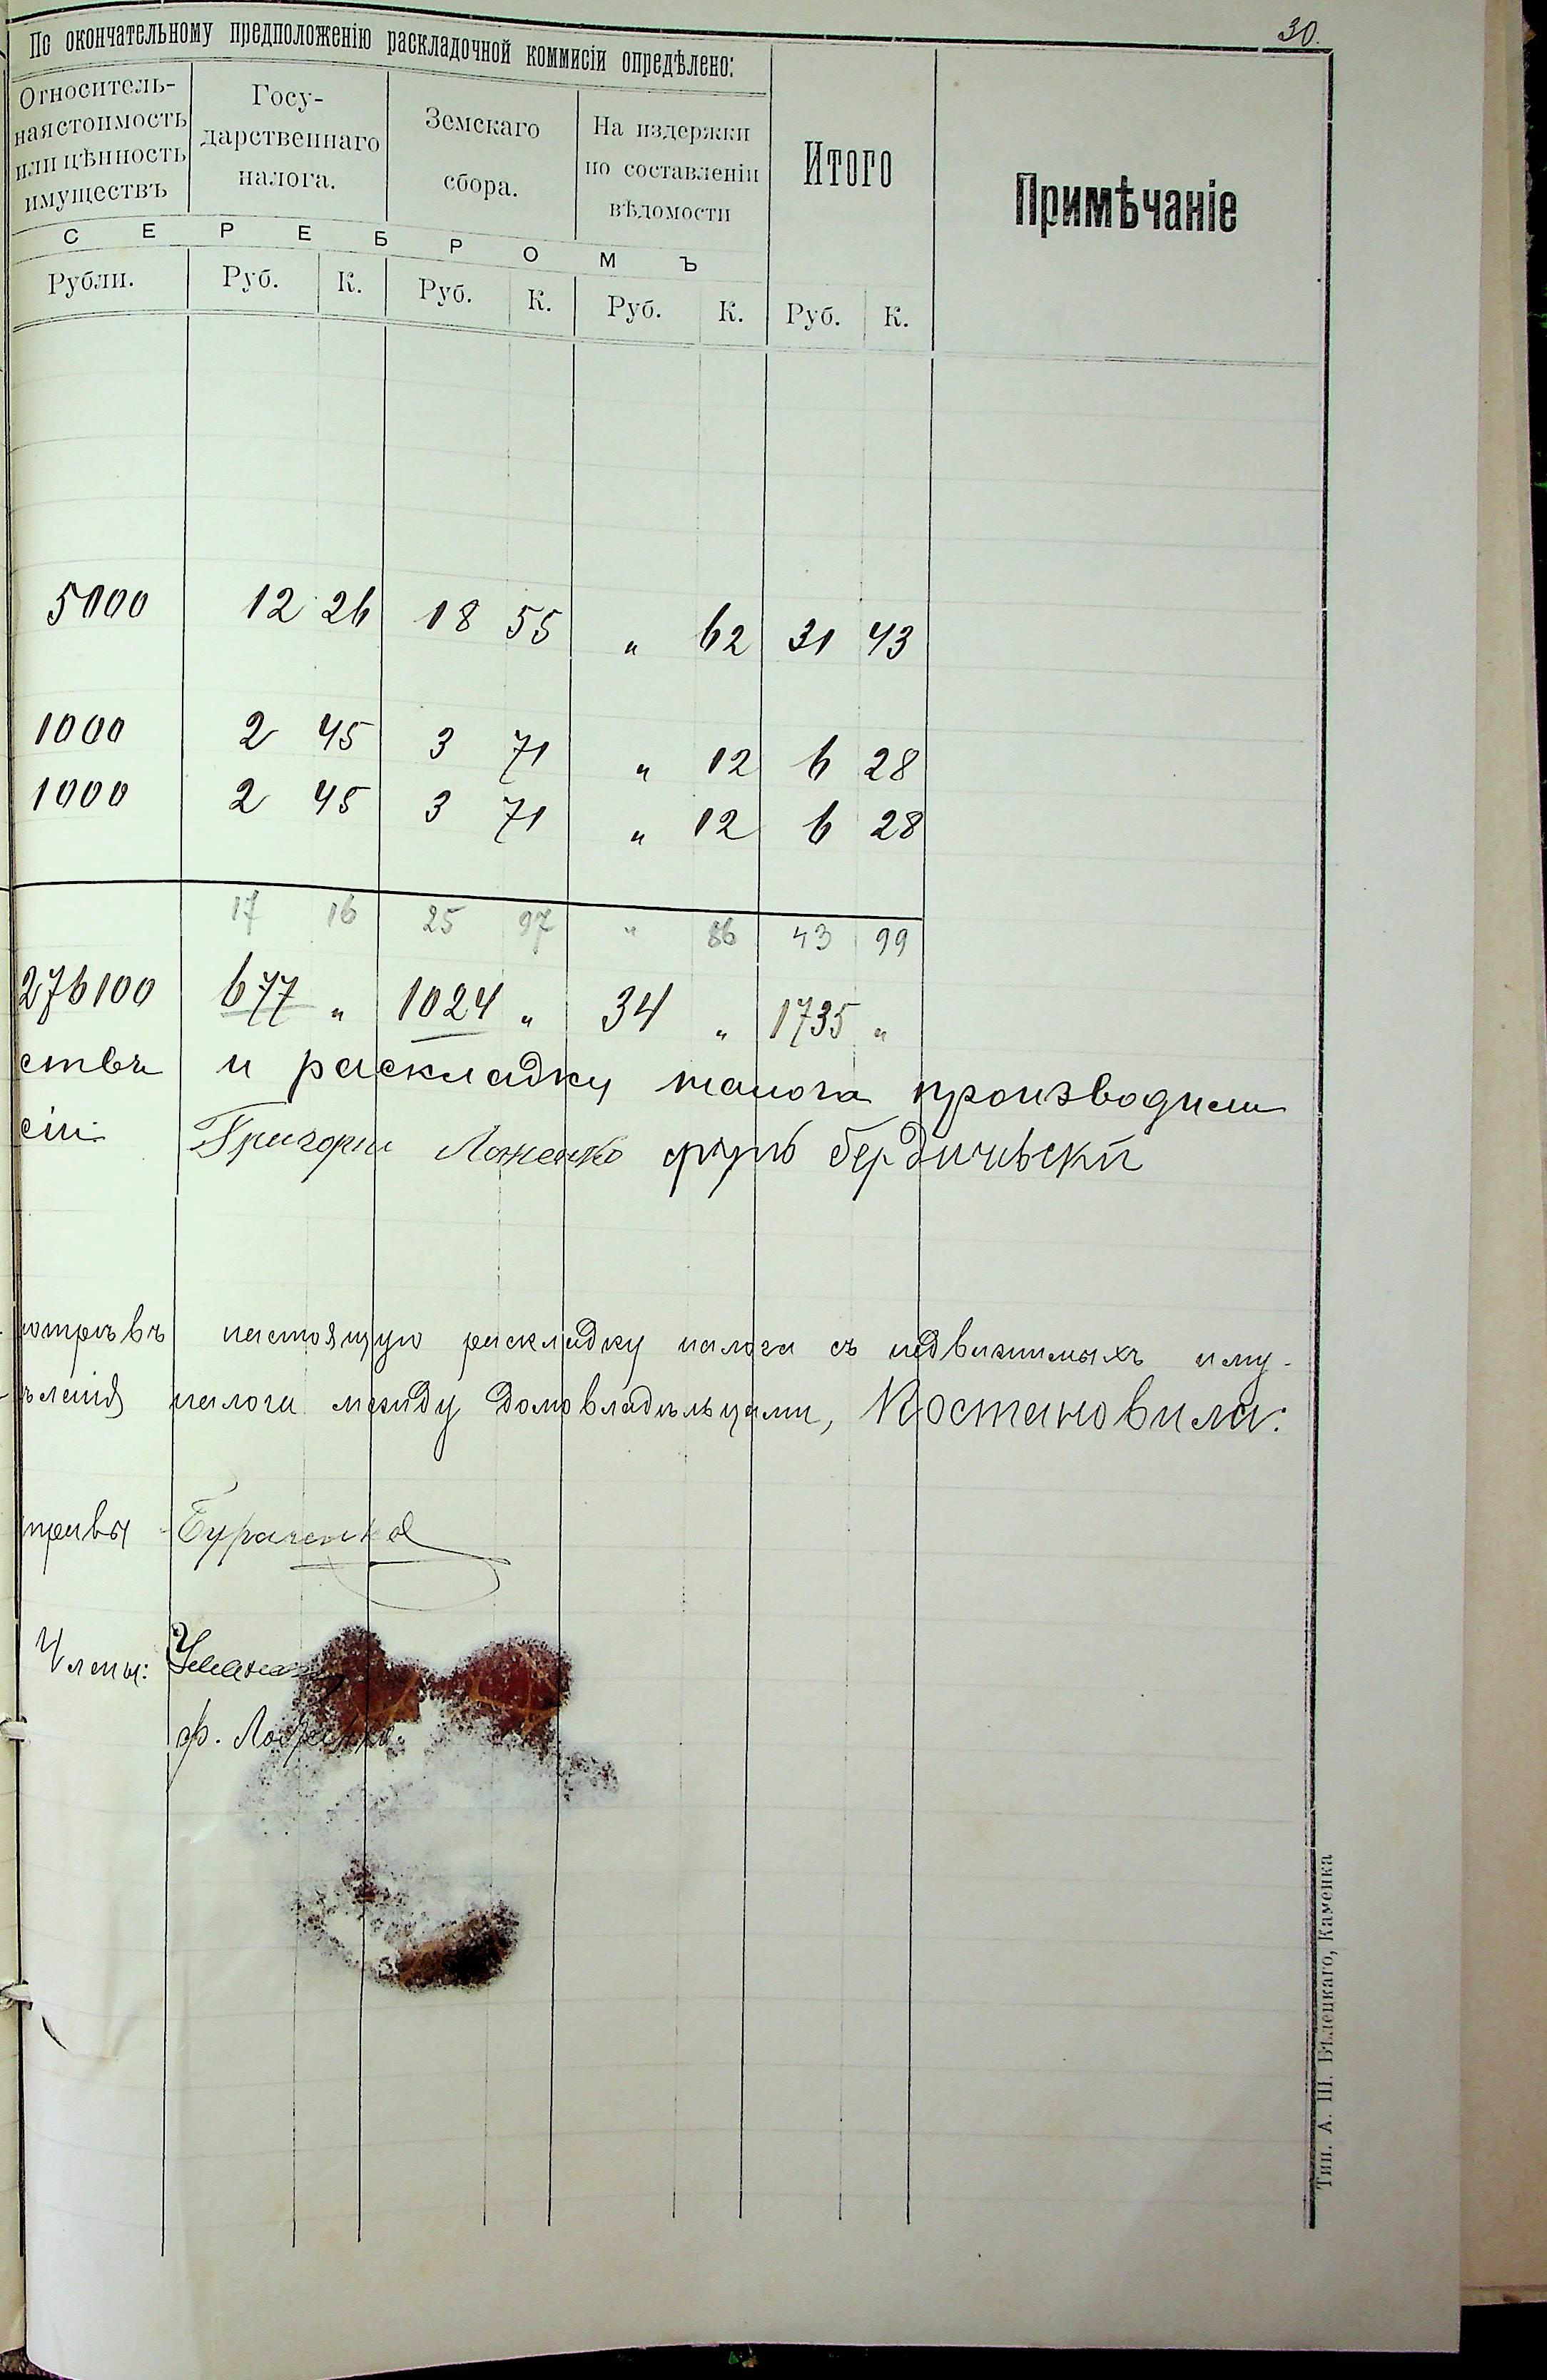 30.
По окончательному предположенію раскладочной коммисіи опредѣлено:
Относитель-
ная стоимость
или цѣнность
имуществъ
Госу-
дарственнаго
налога.
Земскаго
сбора.
На издержки
по составленіи
вѣдомости
Итого
Примѣчаніе
СЕРЕБРОМЪ
Рубли. Руб. К. Руб. К. Руб. К. Руб. К.
5000 12 26 18 55 " 62 31 43
1000 2 45 3 71 " 12 6 28
1000 2 45 3 71 " 12 6 28
17 16 25 97 " 86 43 99
276100 677 " 1024 " 34 " 1735 "
ствъ и раскладку налога производили
сіи: Григорій бердичевскій
отрѣвъ настоящую раскладку налога съ недвижимыхъ иму-
ѣленія налога между домовладѣльцами, Постановила:
правы Бураченко
Члены:
Ф.
Тип. А. Ш. Бѣлецкаго, Каменка